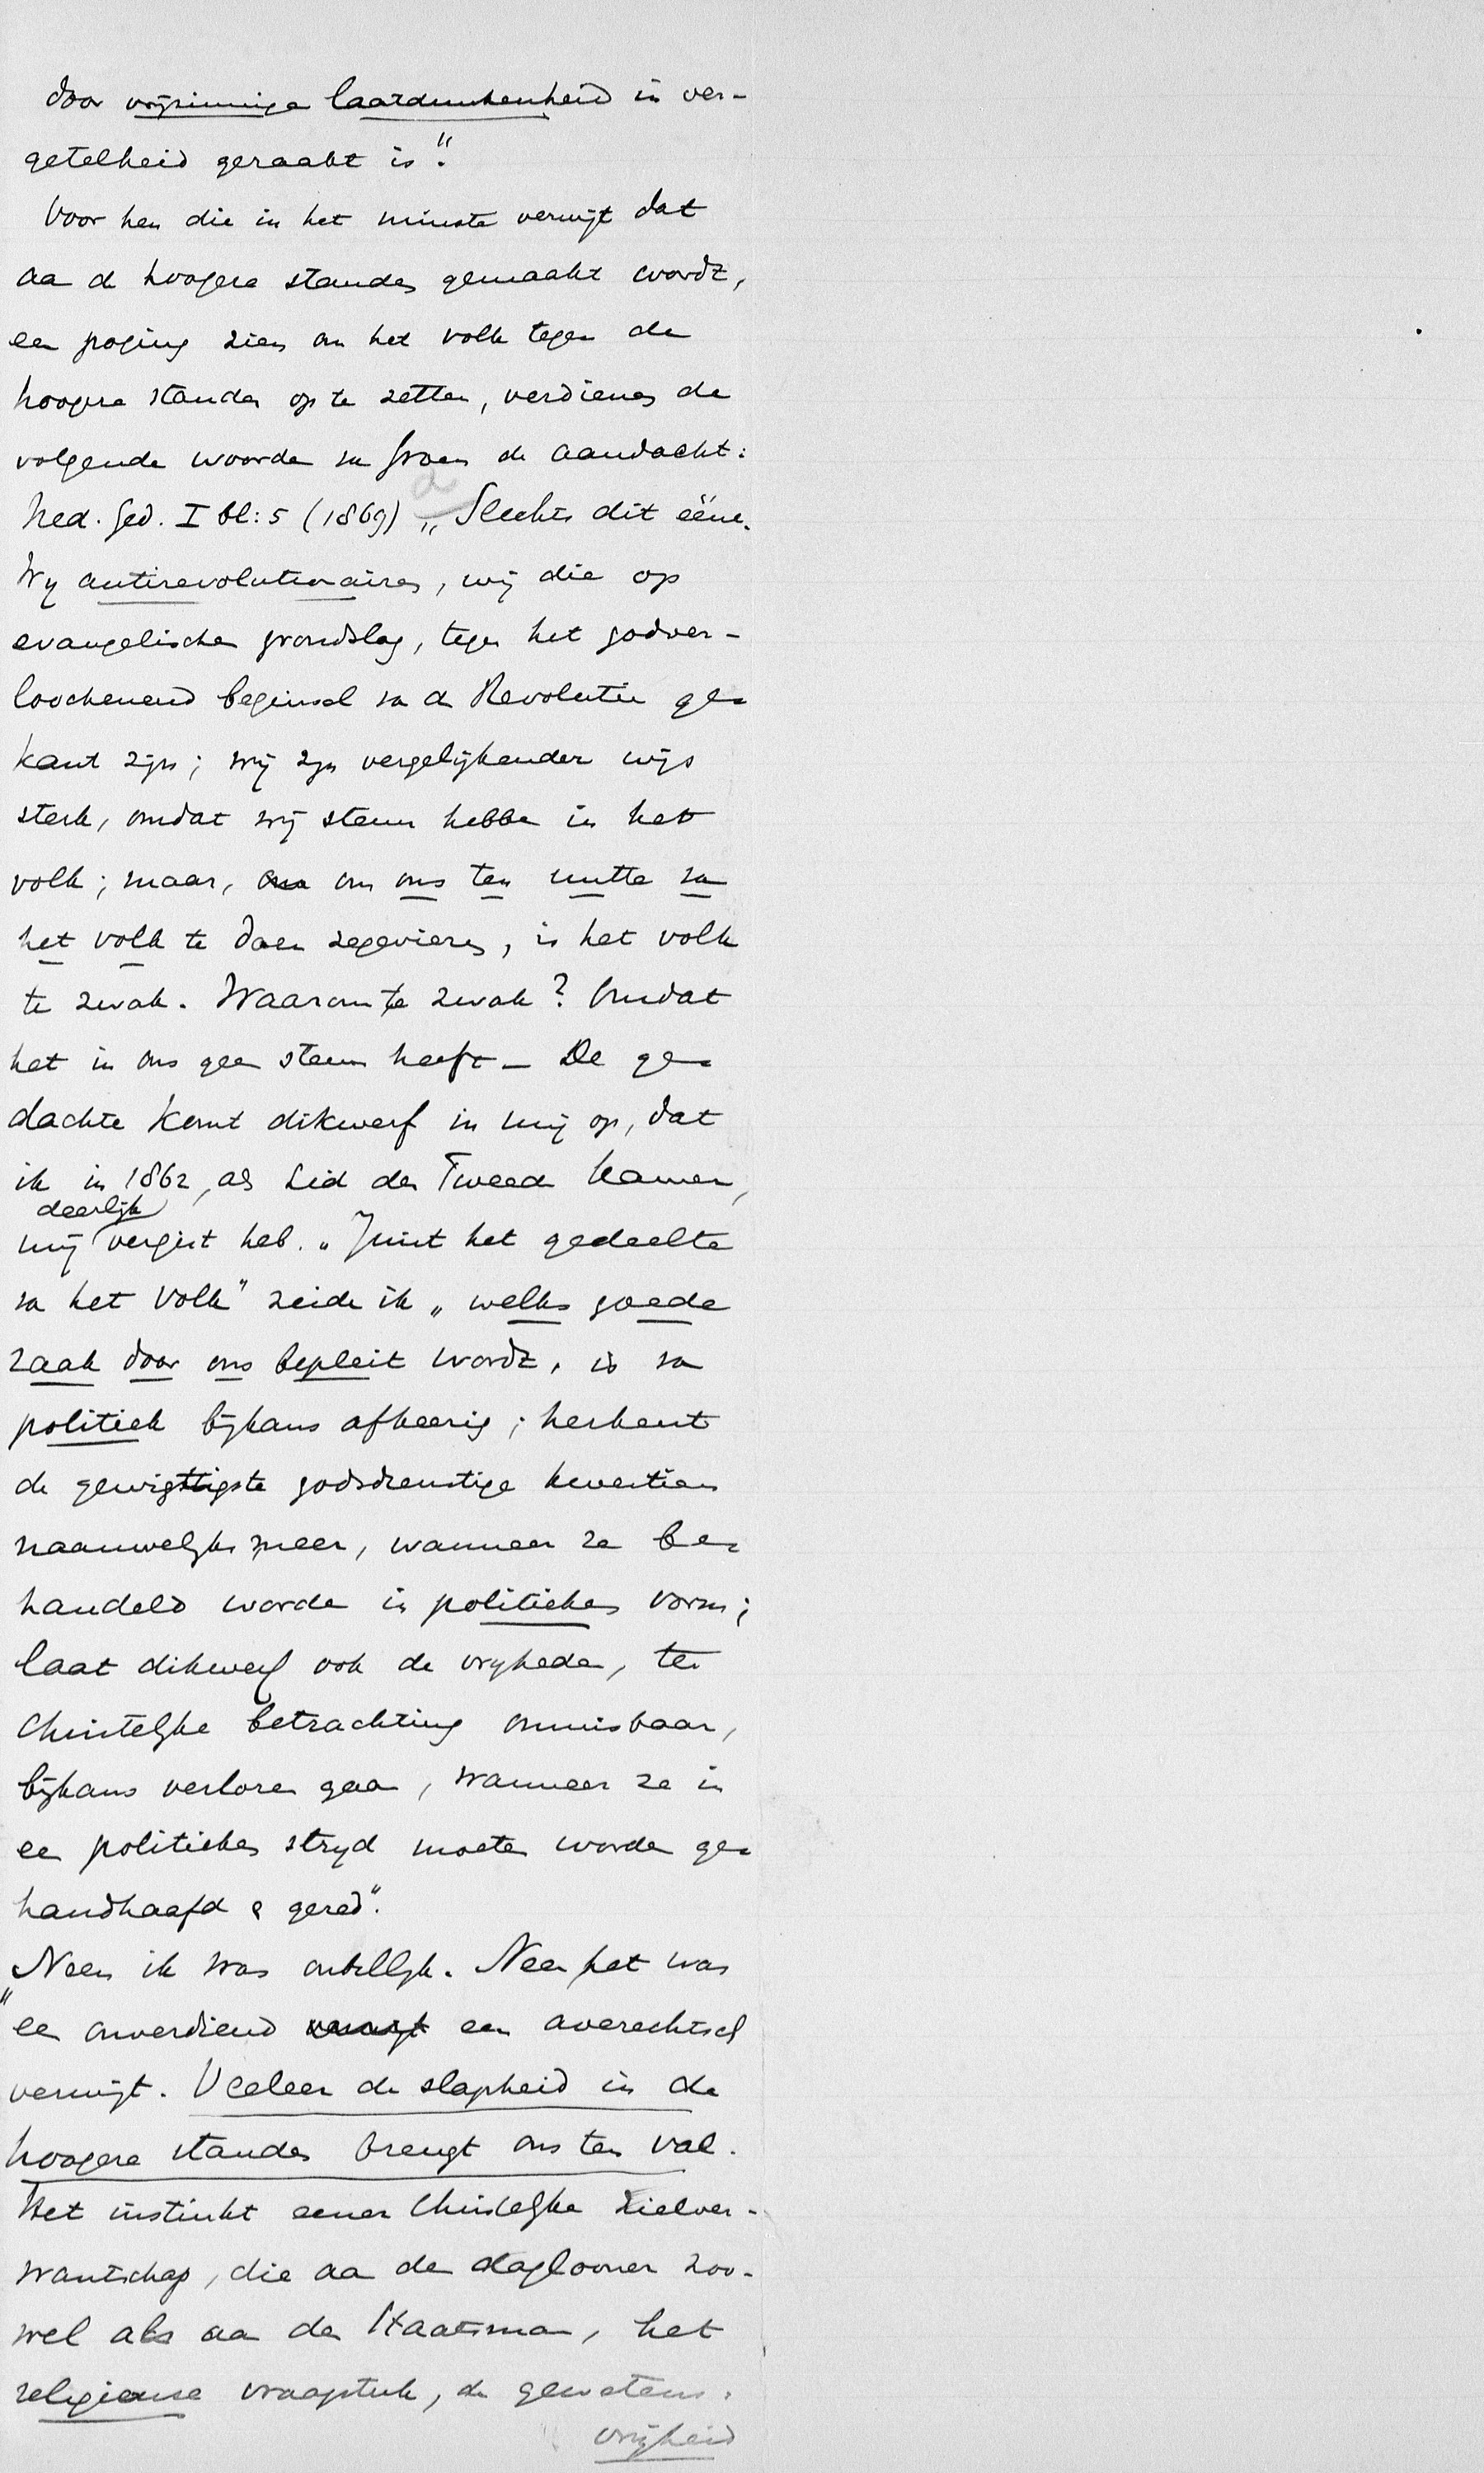 door vrijzinnige laatdunkenheid in ver-
getelheid geraakt is".
Voor hen die in het minste verwijt dat
aa de hoogere standen gemaakt wordt,
een poging zien om het volk tegen de
hoogere standen op te zetten, verdienen de
volgende woorden va Groen de aandacht:
Ned. Ged. I bl: 5 (1869) „Slechts dit ééne.
Wy antirevolutionairen, wij die op
evangelischen grondslag, tegen het godver-
loochenend beginsel va de Revolutie ge-
kant zijn; wij zijn vergelijkender wijs
sterk, omdat wij steun hebben in het
volk; maar, om ons ten nutte va
het volk te doen zegevieren, is het volk
te zwak. Waarom te zwak? Omdat
het in ons geen steun heeft – De ge-
dachte komt dikwerf in mij op, dat
ik in 1862, als Lid der Tweede Kamer,
deerlijk
mij vergist heb. „Juist het gedeelte
va het volk" zeide ik „welks goede
zaak door ons bepleit wordt, is va
politiek bijkans afkeerig; herkent
de gewigtigste godsdienstige kwestien
naauwelijks meer, wanneer ze be-
handeld worden in politieken vorm;
laat dikwerf ook de vryheden, ter
Christelijke betrachting onmisbaar,
bijkans verloren gaan, wanneer ze in
een politieken stryd moeten worden ge-
handhaafd & gered".
Neen ik was onbillijk. Neen het was
"een onverdiend een averechtsch
verwijt. Veeleer de slapheid in de
hoogere standen brengt ons ten val.
Het instinkt eener Christelijke zielver-
wantschap, die aa de daglooner zoo-
wel als aa den Staatsman, het
religieuse vraagstuk, de gewetens-
vrijheid